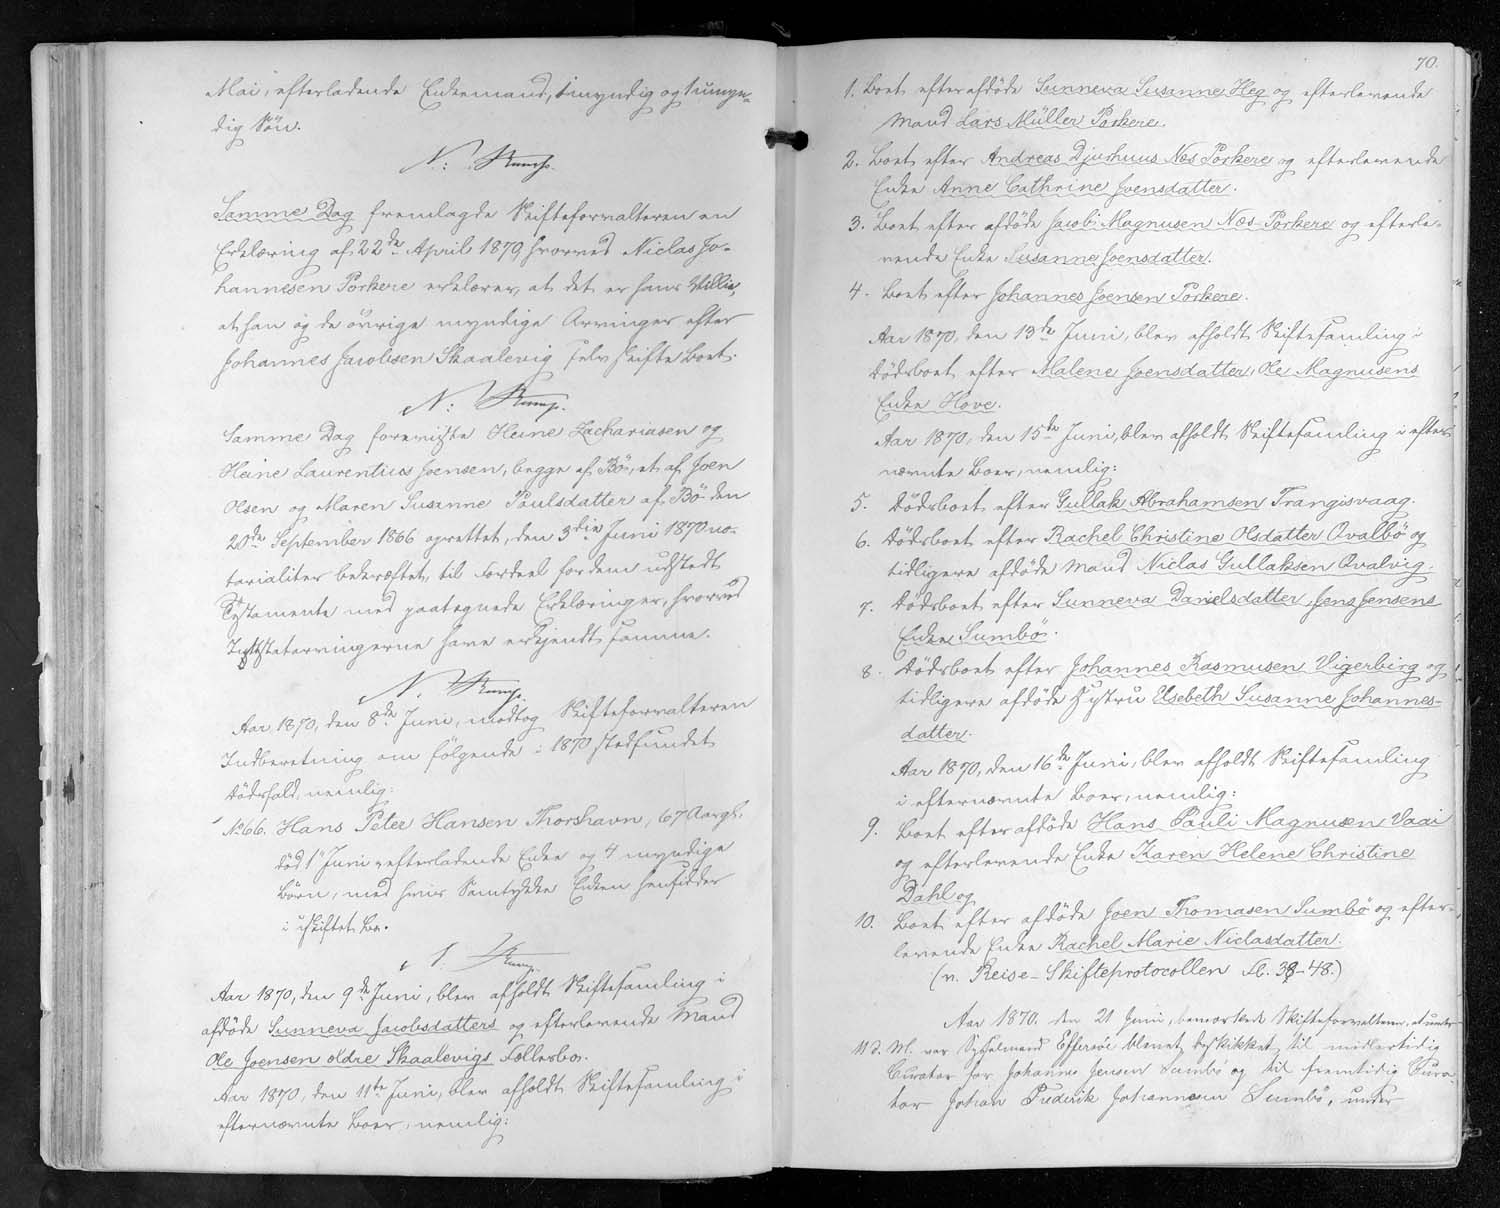 Mai, efterladende Enkemand, 1 myndig og 1 umyn-
dig Søn.
N:
Samme Dag fremlagde Skifteforvalteren en
Erklæring af 22de April 1879 hvorved Niclas Jo-
hannesen Porkere erklærer, at det er hans Villie,
at han og de øvrige myndige Arvinger efter
Johannes Jacobsen Skaalevig selv skifte Boet.
N:
Samme Dag foreviste Heine Zachariasen og
Heine Laurentius Joensen, begge af Bø, et af Joen
Olsen og Maren Susanne Poulsdatter af Bø den
20de September 1866 oprettet, den 3die Juni 1870 no-
tarialiter bekræftet, til Fordeel for dem udstedt
Testamente med paategnede Erklæringer, hvorved
Intestatarvingerne have erkjendt samme.
N.
Aar 1870, den 8de Juni, modtog Skifteforvalteren
Indberetning om følgende i 1870 stedfundet
Dødsfald, nemlig:
No 66. Hans Peter Hansen Thorshavn, 67 Aargl.
død 1 Juni, efterladende Enke og 4 myndige
Børn, med hvis Samtykke Enken hensidder
i uskiftet Bo.
Aar 1870, den 9de Juni, blev afholdt Skiftesamling i
afdøde Sunneva Jacobsdatters og efterlevende Mand
Ole Joensen ældre Skaalevigs Fællesbo.
Aar 1870, den 11te Juni, blev afholdt Skiftesamling i
efternævnte Boer, nemlig:
70.
1. Boet efter afdøde Sunneva Susanne Heg og efterlevende
Mand Lars Müller Porkere.
2. Boet efter Andreas Djurhuus Nes Porkere og efterlevende
Enke Anne Cathrine Joensdatter.
3. Boet efter afdøde Jacob Magnusen Nes-Porkere og efterle-
vende Enke Susanne Joensdatter.
4. Boet efter Johannes Joensen Porkere.
Aar 1870, den 13de Juni, blev afholdt Skiftesamling i
Dødsboet efter Malene Joensdatter, Ole Magnusens
Enke Hove.
Aar 1870, den 15de Juni, blev afholdt Skiftesamling i efter
nævnte Boer, nemlig:
5. Dødsboet efter Gullak Abrahamsen Trangisvaag.
6. Dødsboet efter Rachel Christine Olsdatter Qvalbø og
tidligere afdøde Mand Niclas Gullaksen Qvalvig.
7. Dødsboet efter Sunneva Danielsdatter, Jens Jensens
Enke Sumbø.
8. Dødsboet efter Johannes Rasmusen Vigerbirg og
tidligere afdøde Hustru Elsebeth Susanne Johannes-
datter.
Aar 1870, den 16de Juni, blev afholdt Skiftesamling
i efternævnte Boer, nemlig:
9. Boet efter afdøde Hans Pauli Magnusen Vaai
og efterlevende Enke Karen Helene Christine
Dahl og
10. Boet efter afdøde Joen Thomasen Sumbø og efter-
levende Enke Rachel Marie Niclasdatter.
(v. Reise-Skifteprotocollen fl. 38-48.)
Aar 1870. den 21 Juni, bemærkede Skifteforvalteren, at under
11 d. M. var Sysselmand Effersøe blevet beskikket til midlertidig
Curator for Johanne Jensen Sumbø og til fremtidig Cura-
tor Johan Frederik Johannesen Sumbø, under